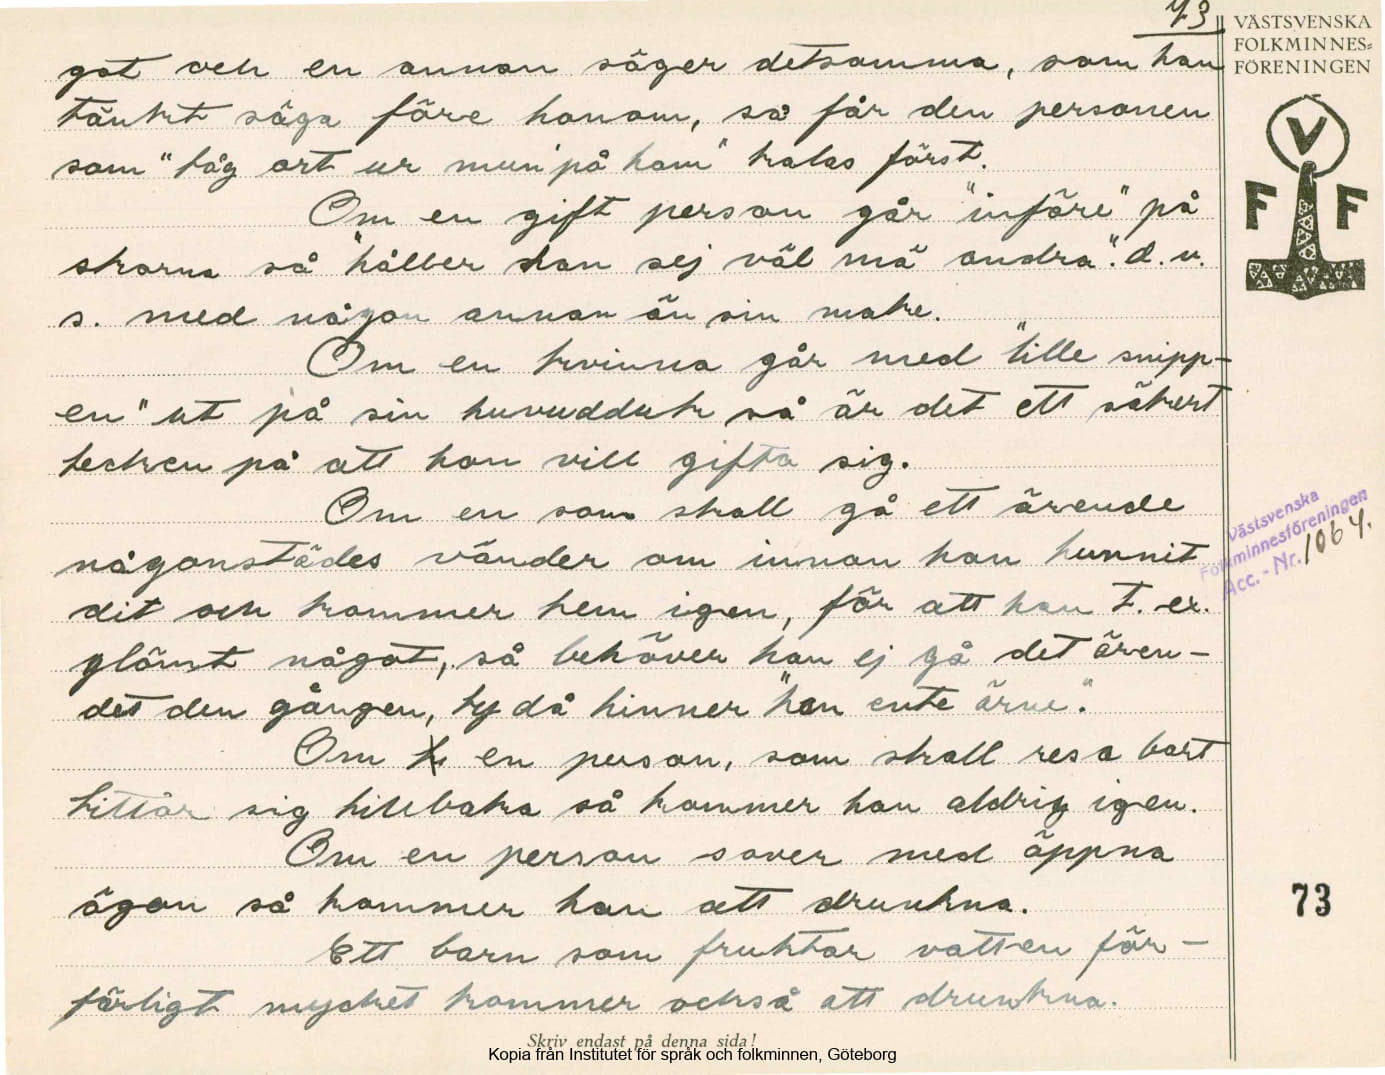 73
VÄSTSVENSKA
FOLKMINNES=
FÖRENINGEN
V
F F
got och en annan säger detsamma, som han
tänkt säga före honom, så får den personen
som "tåg ort ur mun på ham" kalas först.
Om en gift person går "införe" på
skorna så "håller han sej väl mä andra". d. v.
s. med någon annan än sin make.
Om en kvinna går med "lille snipp-
en" ut på sin huvudduk så är det ett säkert
tecken på att hon vill gifta sig.
Om en som skall gå ett ärende
någonstädes vänder om innan han hunnit
dit och kommer hem igen, för att han t. ex.
glömt något, så behöver han ej gå det ären-
det den gången, ty då hinner "han ente ärne".
Om en person, som skall resa bort
tittar sig tillbaka så kommer han aldrig igen.
Om en person sover med öppna
ögon så kommer han att drunkna.
Ett barn som fruktar vatten för-
färligt mycket kommer också att drunkna.
Västsvenska
Folkminnesföreningen
Acc. - Nr. 1064.
73
Skriv endast på denna sida!
Kopia från Institutet för språk och folkminnen, Göteborg